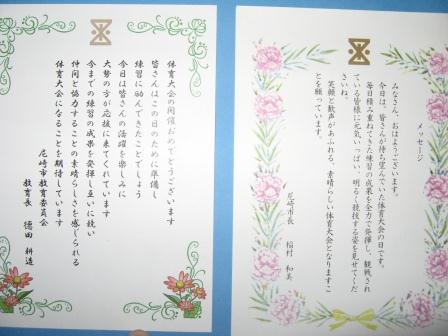 メッセージ
みなさん、おはようございます。
今日は、皆さんが待ち望んでいた体育大会の日です。
毎日積み重ねてきた練習の成果を全力で発揮し、観戦され
ている皆様に元気いっぱい、明るく競技する姿を見せてくだ
さいね。
笑顔と歓声があふれる、素晴らしい体育大会となりますこ
とを願っています。
尼崎市長 稲村 和美
体育大会の開催おめでとうございます
皆さんはこの日のために準備し
練習に励んできたことでしょう
今日は皆さんの活躍を楽しみに
大勢の方が応援に来てくれています
今までの練習の成果を発揮し互いに競い
仲間と協力することの素晴らしさを感じられる
体育大会になることを期待しています
尼崎市教育委員会
教育長 徳田 耕造